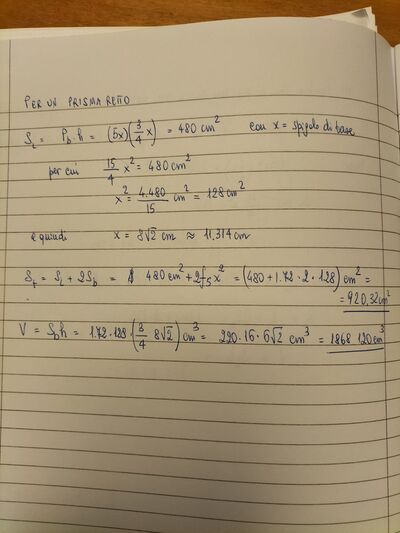 PER UN PRISMA RETTO
S_L = P_b · h = (5x)(3/4 x) = 480 cm² con x = spigolo di base
per cui 15/4 x² = 480 cm²
x² = 4.480/15 cm² = 128 cm²
e quindi x = 8√2 cm ≈ 11,314 cm
S_t = S_L + 2S_b = 480 cm² + 2f₅x² = (480 + 1.72 · 2 · 128) cm² =
= 920,32 cm²
V = S_b h = 1.72 · 128 · (3/4 8√2) cm³ = 220.16 · 6√2 cm³ = 1868.120 cm³